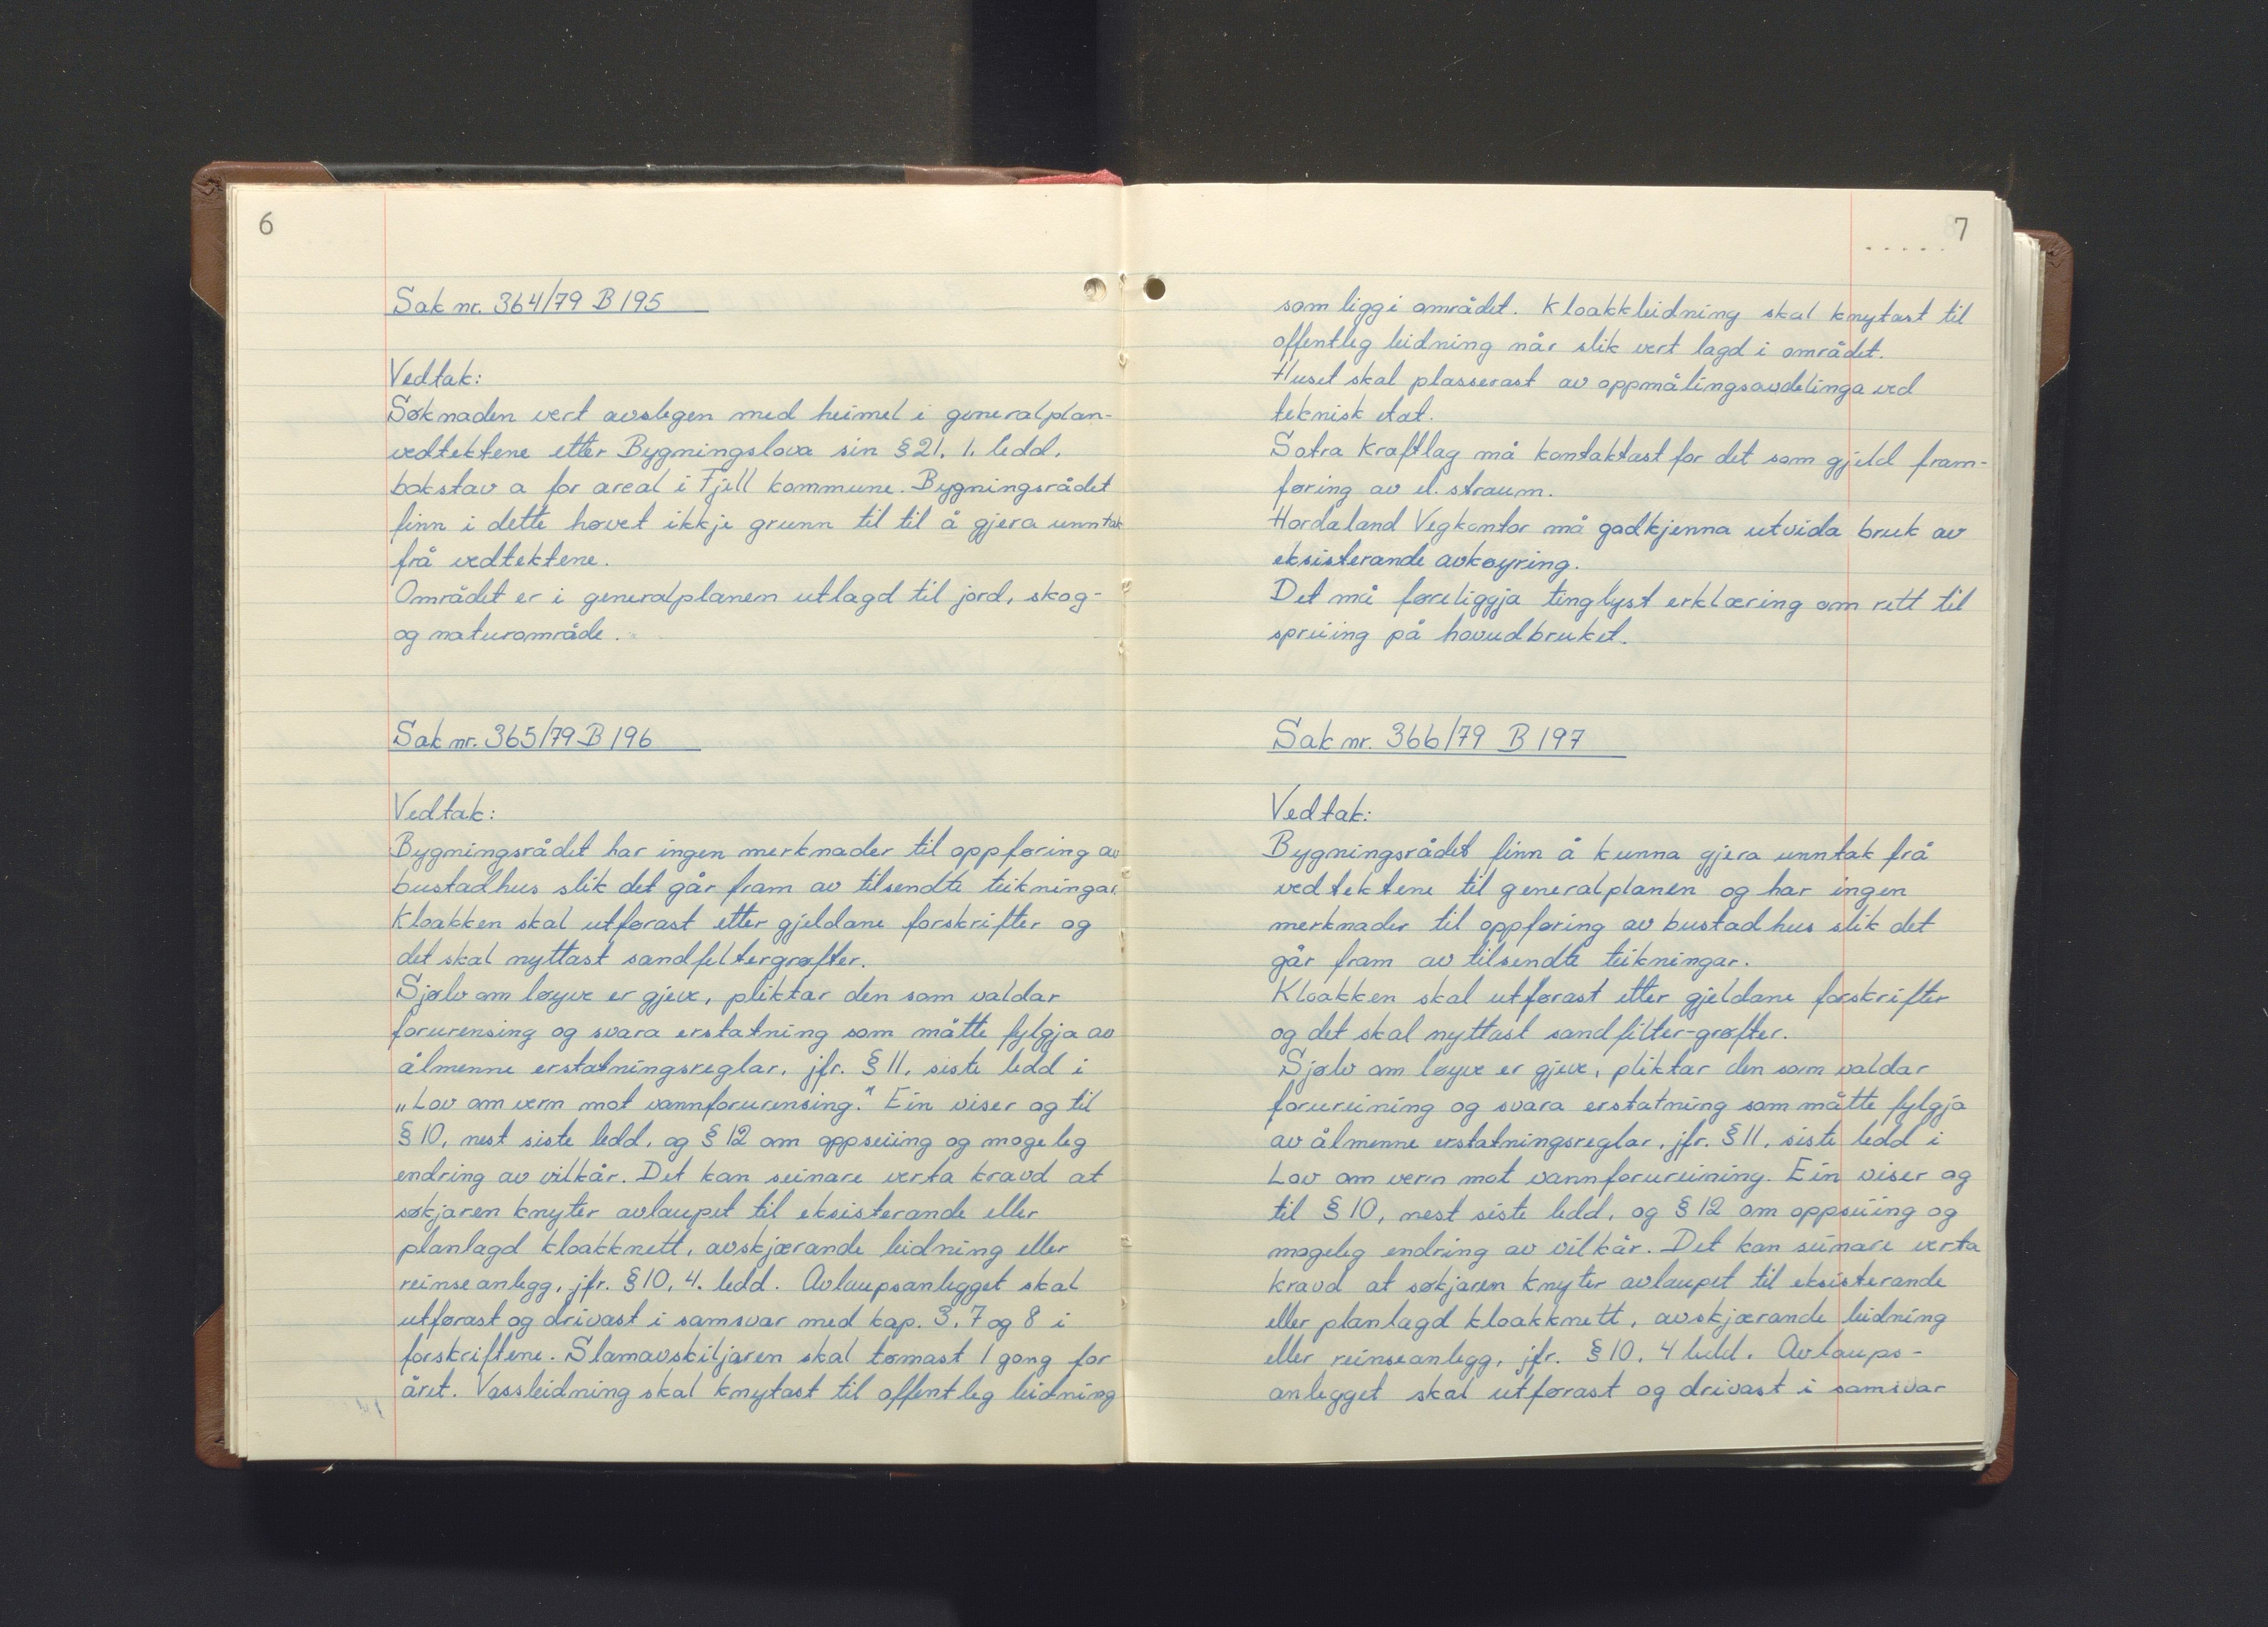 6
Sak nr. 364/79 B 195
Vedtak:
Søknaden vert avslegen med heimel i generalplan-
vedtektene etter Bygningslova sin § 21, 1. ledd,
bokstav a for areal i Fjell kommune. Bygningsrådet
finn i dette høvet ikkje grunn til til å gjera unntak
frå vedtektene.
Området er i generalplanen utlagd til jord, skog-
og naturområde.
Sak nr. 365/79 B 196
Vedtak:
Bygningsrådet har ingen merknader til oppføring av
bustadhus slik det går fram av tilsendte teikningar.
Kloakken skal utførast etter gjeldane forskrifter og
det skal nyttast sandfeltergrøfter.
Sjølv om løyve er gjeve, pliktar den som valdar
forurensing og svara erstatning som måtte fylgja av
ålmenne erstatningsreglar, jfr. § 11, siste ledd i
„Lov om vern mot vannforurensing." Ein viser og til
§ 10, nest siste ledd, og § 12 om oppseiing og mogeleg
endring av vilkår. Det kan seinare verta kravd at
søkjaren knyter avlaupet til eksisterande eller
planlagd kloakknett, avskjærande leidning eller
reinseanlegg, jfr. § 10, 4. ledd. Avlaupsanlegget skal
utførast og drivast i samsvar med kap. 3, 7 og 8 i
forskriftene. Slamavskiljaren skal tømast 1 gong for
året. Vassleidning skal knytast til offentleg leidning
7
som ligg i området. Kloakkleidning skal knytast til
offentleg leidning når slik vert lagd i området.
Huset skal plasserast av oppmålingsavdelinga ved
teknisk etat.
Sotra Kraftlag må kontaktast for det som gjeld fram-
føring av el. straum.
Hordaland Vegkontor må godkjenna utvida bruk av
eksisterande avkøyring.
Det må føreliggja tinglyst erklæring om rett til
spreiing på hovudbruket.
Sak nr. 366/79 B 197
Vedtak:
Bygningsrådet finn å kunna gjera unntak frå
vedtektene til generalplanen og har ingen
merknader til oppføring av bustadhus slik det
går fram av tilsendte teikningar.
Kloakken skal utførast etter gjeldane forskrifter
og det skal nyttast sandfilter-grøfter.
Sjølv om løyve er gjeve, pliktar den som valdar
forureining og svara erstatning som måtte fylgja
av ålmenne erstatningsreglar, jfr. § 11, siste ledd i
Lov om vern mot vannforureining. Ein viser og
til § 10, nest siste ledd, og § 12 om oppseiing og
mogeleg endring av vilkår. Det kan seinare verta
kravd at søkjaren knyter avlaupet til eksisterande
eller planlagd kloakknett, avskjærande leidning
eller reinseanlegg, jfr. § 10, 4 ledd. Avlaups-
anlegget skal utførast og drivast i samsvar